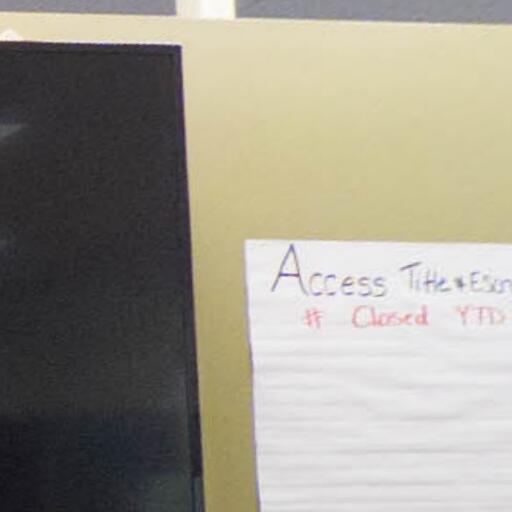 Access Title & Escr
# Closed YTD